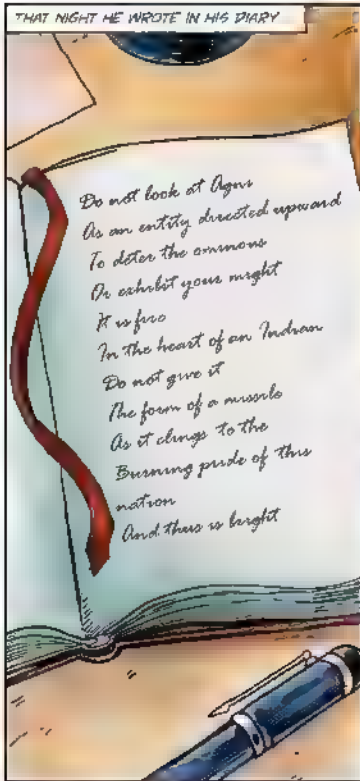 THAT NIGHT HE WROTE IN HIS DIARY
Do not look at Agni
As an entity directed upward
To deter the ominous
Or exhibit your might
It is fire
In the heart of an Indian
Do not give it
The form of a missile
As it clings to the
Burning pride of this
nation
And thus is bright